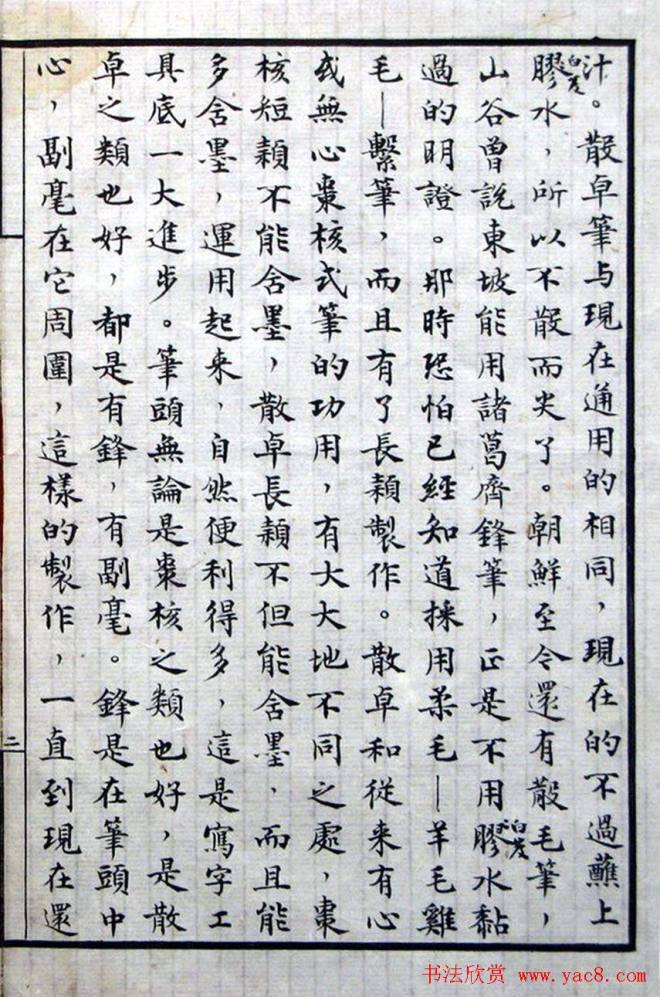 汁。散卓筆与現在通用的相同，現在的不過蘸上
膠水，所以不散而尖了。朝鮮至今還有散毛筆，
白芨
山谷曾說東坡能用諸葛齊鋒筆，正是不用膠水黏
白芨
過的明證。那時恐怕已經知道採用柔毛—羊毛雞
毛—繫筆，而且有了長穎製作。散卓和從来有心
或無心棗核式筆的功用，有大大地不同之處，棗
核短穎不能含墨，散卓長穎不但能含墨，而且能
多含墨，運用起来，自然便利得多，這是寫字工
具底一大進步。筆頭無論是棗核之類也好，是散
卓之類也好，都是有鋒，有副毫。鋒是在筆頭中
心，副毫在它周圍，這樣的製作，一直到現在還
二
书法欣赏 www.yac8.com